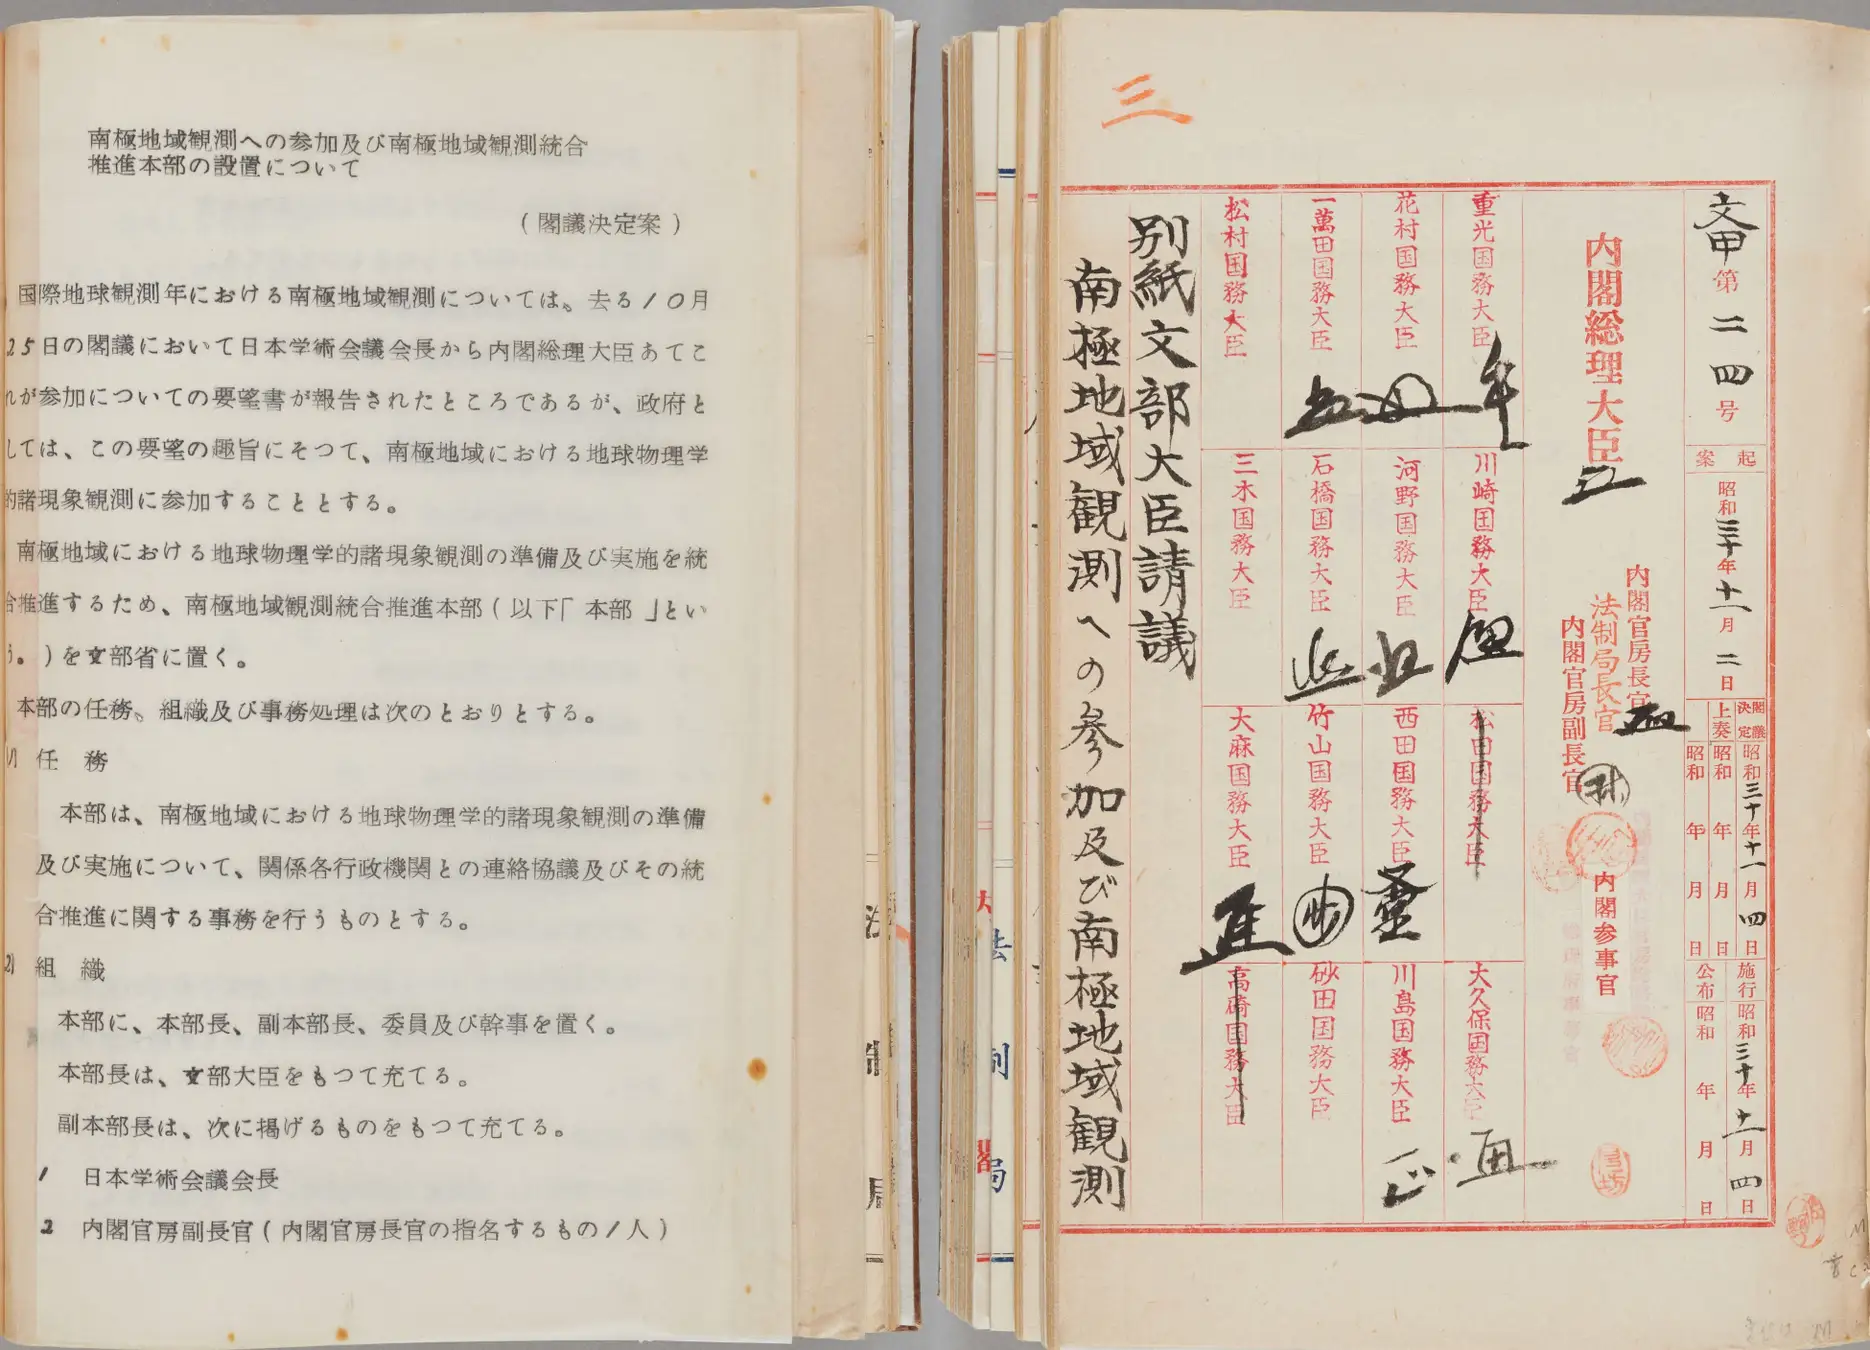 南極地域観測への参加及び南極地域観測統合
推進本部の設置について
(閣議決定案)
国際地球観測年における南極地域観測については。去る10月
25日の閣議において日本学術会議会長から内閣総理大臣あてこ
れが参加についての要望書が報告されたところであるが、政府と
しては、この要望の趣旨にそつて、南極地域における地球物理学
的諸現象観測に参加することとする。
南極地域における地球物理学的諸現象観測の準備及び実施を統
合推進するため、南極地域観測統合推進本部(以下「本部」とい
う。)を文部省に置く。
本部の任務、組織及び事務処理は次のとおりとする。
任 務
本部は、南極地域における地球物理学的諸現象観測の準備
及び実施について、関係各行政機関との連絡協議及びその統
合推進に関する事務を行うものとする。
2) 組 織
本部に、本部長、副本部長、委員及び幹事を置く。
本部長は、文部大臣をもつて充てる。
副本部長は、次に掲げるものをもつて充てる。
1 日本学術会議会長
2 内閣官房副長官(内閣官房長官の指名するもの1人)
三
文甲第二四号
起案 昭和三十年十一月二日
閣議決定 昭和三十年十一月四日
上奏 昭和 年 月 日
昭和 年 月 日
施行 昭和三十年十一月四日
公布 昭和 年 月 日
内閣総理大臣
内閣官房長官
法制局長官
内閣官房副長官
内閣参事官
重光国務大臣
花村国務大臣
一萬田国務大臣
松村国務大臣
川崎国務大臣
河野国務大臣
石橋国務大臣
三木国務大臣
松田国務大臣
西田国務大臣
竹山国務大臣
大麻国務大臣
大久保国務大臣
川島国務大臣
砂田国務大臣
高碕国務大臣
別紙文部大臣請議
南極地域観測への参加及び南極地域観測
法
制
局